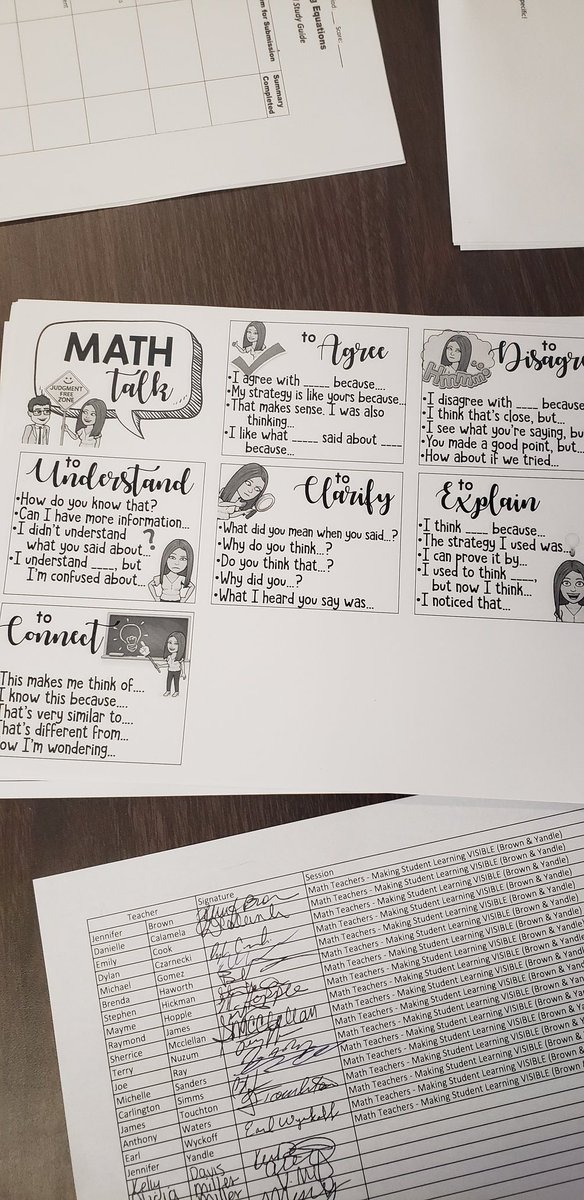 Score:
g Equations
Study Guide
m for Submission
Summary
Completed
specific!
MATH
talk
JUDGMENT
FREE
ZONE
to Agree
•I agree with _____ because....
•My strategy is like yours because...
•That makes sense. I was also
thinking...
•I like what _____ said about ____
because...
to
Disagre
Hmmm
•I disagree with ____ because
•I think that's close, but...
•I see what you're saying, bu
•You made a good point, but...
•How about if we tried...
to
Understand
•How do you know that?
•Can I have more information...
•I didn't understand
what you said about...
•I understand ____, but
I'm confused about...
?
to
Clarify
•What did you mean when you said...?
•Why do you think...?
•Do you think that...?
•Why did you...?
•What I heard you say was...
to
Explain
•I think ____ because...
•The strategy I used was...
•I can prove it by...
•I used to think ____,
but now I think...
•I noticed that...
to
Connect
This makes me think of....
I know this because....
That's very similar to....
That's different from...
ow I'm wondering...
Teacher Signature Session
Jennifer Brown Math Teachers - Making Student Learning VISIBLE (Brown & Yandle)
Danielle Calamela Math Teachers - Making Student Learning VISIBLE (Brown & Yandle)
Emily Cook Math Teachers - Making Student Learning VISIBLE (Brown & Yandle)
Dylan Czarnecki Math Teachers - Making Student Learning VISIBLE (Brown & Yandle)
Michael Gomez Math Teachers - Making Student Learning VISIBLE (Brown & Yandle)
Brenda Haworth Math Teachers - Making Student Learning VISIBLE (Brown & Yandle)
Stephen Hickman Math Teachers - Making Student Learning VISIBLE (Brown & Yandle)
Mayme Hopple Math Teachers - Making Student Learning VISIBLE (Brown & Yandle)
Raymond James Math Teachers - Making Student Learning VISIBLE (Brown & Yandle)
Sherrice Mcclellan Math Teachers - Making Student Learning VISIBLE (Brown & Yandle)
Terry Nuzum Math Teachers - Making Student Learning VISIBLE (Brown & Yandle)
Joe Ray Math Teachers - Making Student Learning VISIBLE (Brown & Yandle)
Michelle Sanders Math Teachers - Making Student Learning VISIBLE (Brown & Yandle)
Carlington Simms Math Teachers - Making Student Learning VISIBLE (Brown & Yandle)
James Touchton Math Teachers - Making Student Learning VISIBLE (Brown & Yandle)
Anthony Waters Math Teachers - Making Student Learning VISIBLE (Brown & Yandle)
Earl Wyckoff Earl Wyckoff Math Teachers - Making Student Learning VISIBLE (Brown & Yandle)
Jennifer Yandle Math Teachers - Making Student Learning VISIBLE (Brown & Yandle)
Kelly Davis
Miller